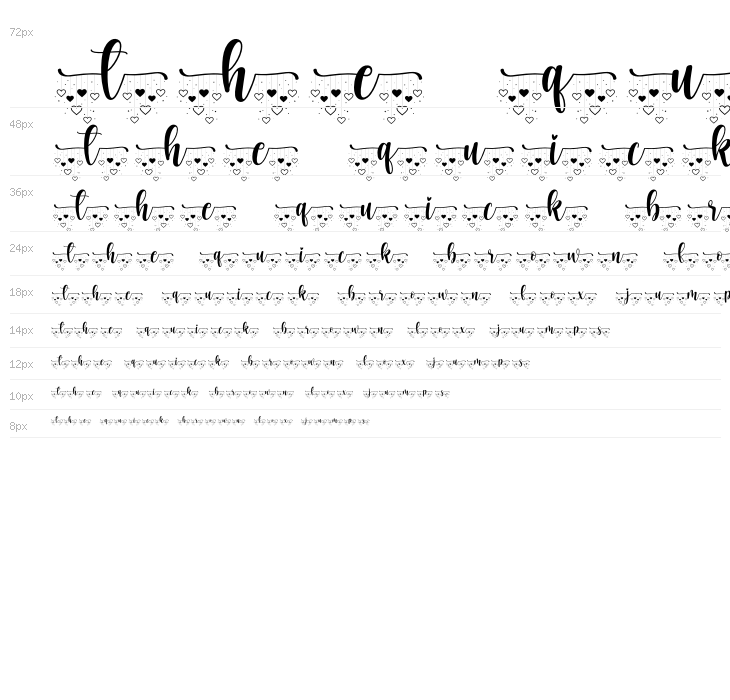 72px the qu
48px the quick
36px the quick br
24px the quick brown fo
18px the quick brown fox jump
14px the quick brown fox jumps
12px the quick brown fox jumps
10px the quick brown fox jumps
8px the quick brown fox jumps